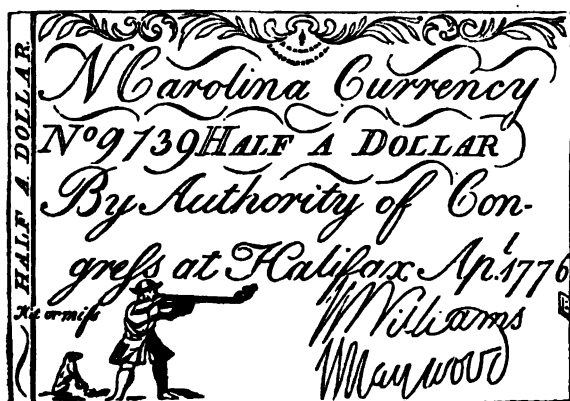 HALF A DOLLAR.
N Carolina Currency
No 9739 HALF A DOLLAR
By Authority of Con-
greſs at Halifax Ap.l 1776
Hit or miſs
W Williams
W Haywood